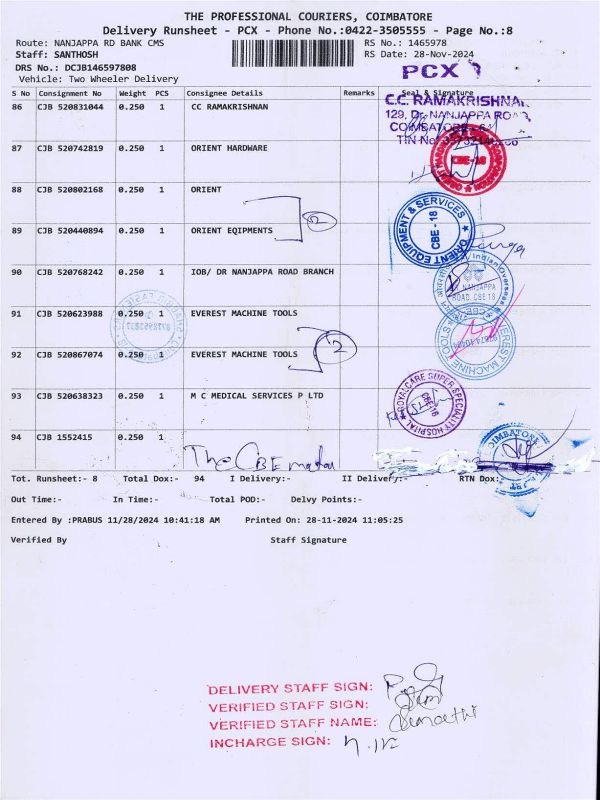 THE PROFESSIONAL COURIERS, COIMBATORE
Delivery Runsheet - PCX - Phone No.:0422-3505555 - Page No.:8
Route: NANJAPPA RD BANK CMS RS No.: 1465978
Staff: SANTHOSH RS Date: 28-Nov-2024
DRS No.: DCJB146597808
Vehicle: Two Wheeler Delivery
PCX
S No Consignment No Weight PCS Consignee Details Remarks Seal & Signature
86 CJB 520831044 0.250 1 CC RAMAKRISHNAN
C.C. RAMAKRISHNAN
129, Dr. NANJAPPA ROAD
COIMBATORE
TIN No
87 CJB 520742819 0.250 1 ORIENT HARDWARE
CBE-18
88 CJB 520802168 0.250 1 ORIENT
2
ORIENT EQUIPMENT & SERVICES
CBE - 18
89 CJB 520440894 0.250 1 ORIENT EQIPMENTS
90 CJB 520768242 0.250 1 IOB/ DR NANJAPPA ROAD BRANCH
Indian Overseas
NANJAPPA
ROAD, CBE 18
91 CJB 520623988 0.250 1 EVEREST MACHINE TOOLS
2
EVEREST MACHINE TOOLS
92 CJB 520867074 0.250 1 EVEREST MACHINE TOOLS
93 CJB 520638323 0.250 1 M C MEDICAL SERVICES P LTD
ROYALCARE SUPER SPECIALITY HOSPITAL
CBE-18
94 CJB 1552415 0.250 1
The CBE
COIMBATORE
Tot. Runsheet:- 8 Total Dox:- 94 I Delivery:- II Delivery:- RTN Dox:
Out Time:- In Time:- Total POD:- Delvy Points:-
Entered By :PRABUS 11/28/2024 10:41:18 AM Printed On: 28-11-2024 11:05:25
Verified By Staff Signature
DELIVERY STAFF SIGN:
VERIFIED STAFF SIGN:
VERIFIED STAFF NAME:
INCHARGE SIGN: